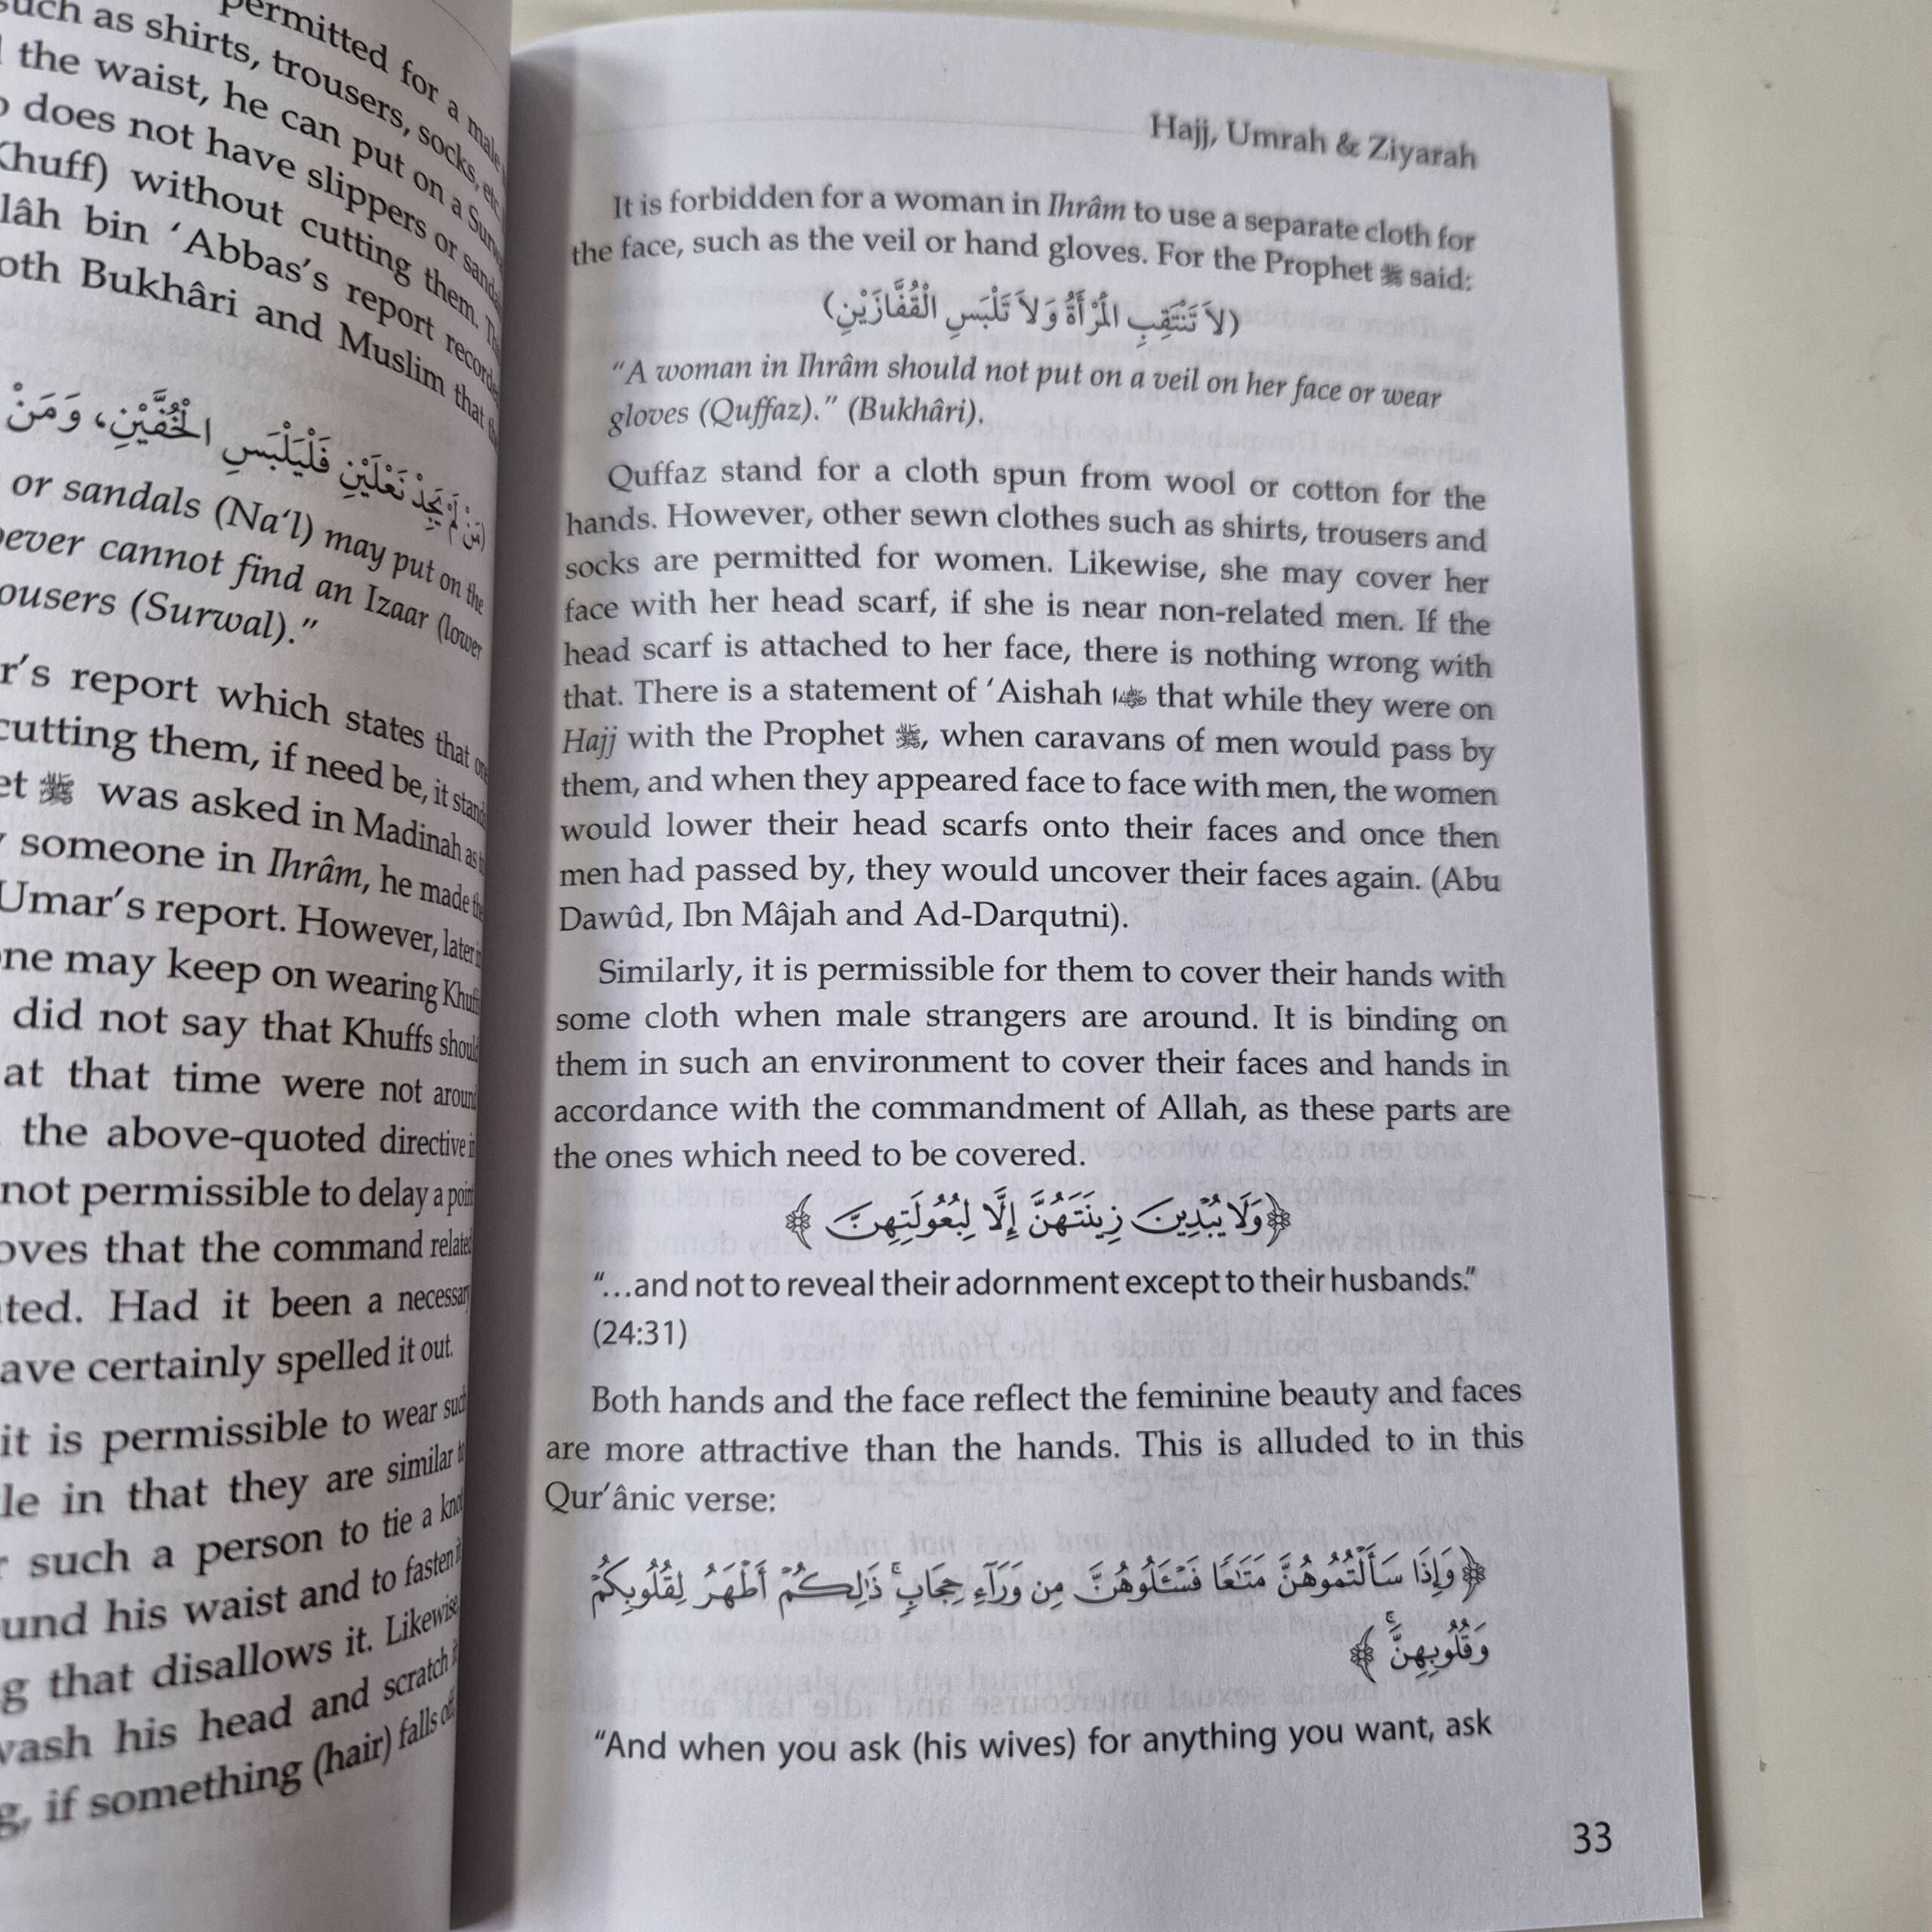 permitted for a male
such as shirts, trousers, socks, etc.
the waist, he can put on a
does not have slippers or
Khuff) without cutting them.
lâh bin ‘Abbas’s report recorded
oth Bukhâri and Muslim that
(مَنْ لَمْ يَجِدْ نَعْلَيْنِ فَلْيَلْبَسِ الْخُفَّيْنِ، وَمَنْ
or sandals (Na‘l) may put on the
ever cannot find an Izaar (lower
ousers (Surwal).”
r’s report which states that
cutting them, if need be, it
et ﷺ was asked in Madinah as
someone in Ihrâm, he made
Umar’s report. However, later
ne may keep on wearing
did not say that Khuffs
at that time were not
the above-quoted directive
not permissible to delay a
oves that the command
ted. Had it been a
ave certainly spelled it out.
it is permissible to wear
le in that they are similar
such a person to tie a
und his waist and to fasten
g that disallows it. Likewise
wash his head and scratch
g, if something (hair) falls
Hajj, Umrah & Ziyarah
It is forbidden for a woman in Ihrâm to use a separate cloth for
the face, such as the veil or hand gloves. For the Prophet ﷺ said:
(لاَ تَنْتَقِبِ الْمَرْأَةُ وَلاَ تَلْبَسِ الْقُفَّازَيْنِ)
“A woman in Ihrâm should not put on a veil on her face or wear
gloves (Quffaz).” (Bukhâri).
Quffaz stand for a cloth spun from wool or cotton for the
hands. However, other sewn clothes such as shirts, trousers and
socks are permitted for women. Likewise, she may cover her
face with her head scarf, if she is near non-related men. If the
head scarf is attached to her face, there is nothing wrong with
that. There is a statement of ‘Aishah that while they were on
Hajj with the Prophet ﷺ, when caravans of men would pass by
them, and when they appeared face to face with men, the women
would lower their head scarfs onto their faces and once then
men had passed by, they would uncover their faces again. (Abu
Dawûd, Ibn Mâjah and Ad-Darqutni).
Similarly, it is permissible for them to cover their hands with
some cloth when male strangers are around. It is binding on
them in such an environment to cover their faces and hands in
accordance with the commandment of Allah, as these parts are
the ones which need to be covered.
﴿وَلَا يُبْدِينَ زِينَتَهُنَّ إِلَّا لِبُعُولَتِهِنَّ﴾
“…and not to reveal their adornment except to their husbands.”
(24:31)
Both hands and the face reflect the feminine beauty and faces
are more attractive than the hands. This is alluded to in this
Qur’ânic verse:
﴿وَإِذَا سَأَلْتُمُوهُنَّ مَتَٰعًا فَسْـَٔلُوهُنَّ مِن وَرَآءِ حِجَابٍ ۚ ذَٰلِكُمْ أَطْهَرُ لِقُلُوبِكُمْ
وَقُلُوبِهِنَّ ۚ﴾
“And when you ask (his wives) for anything you want, ask
33